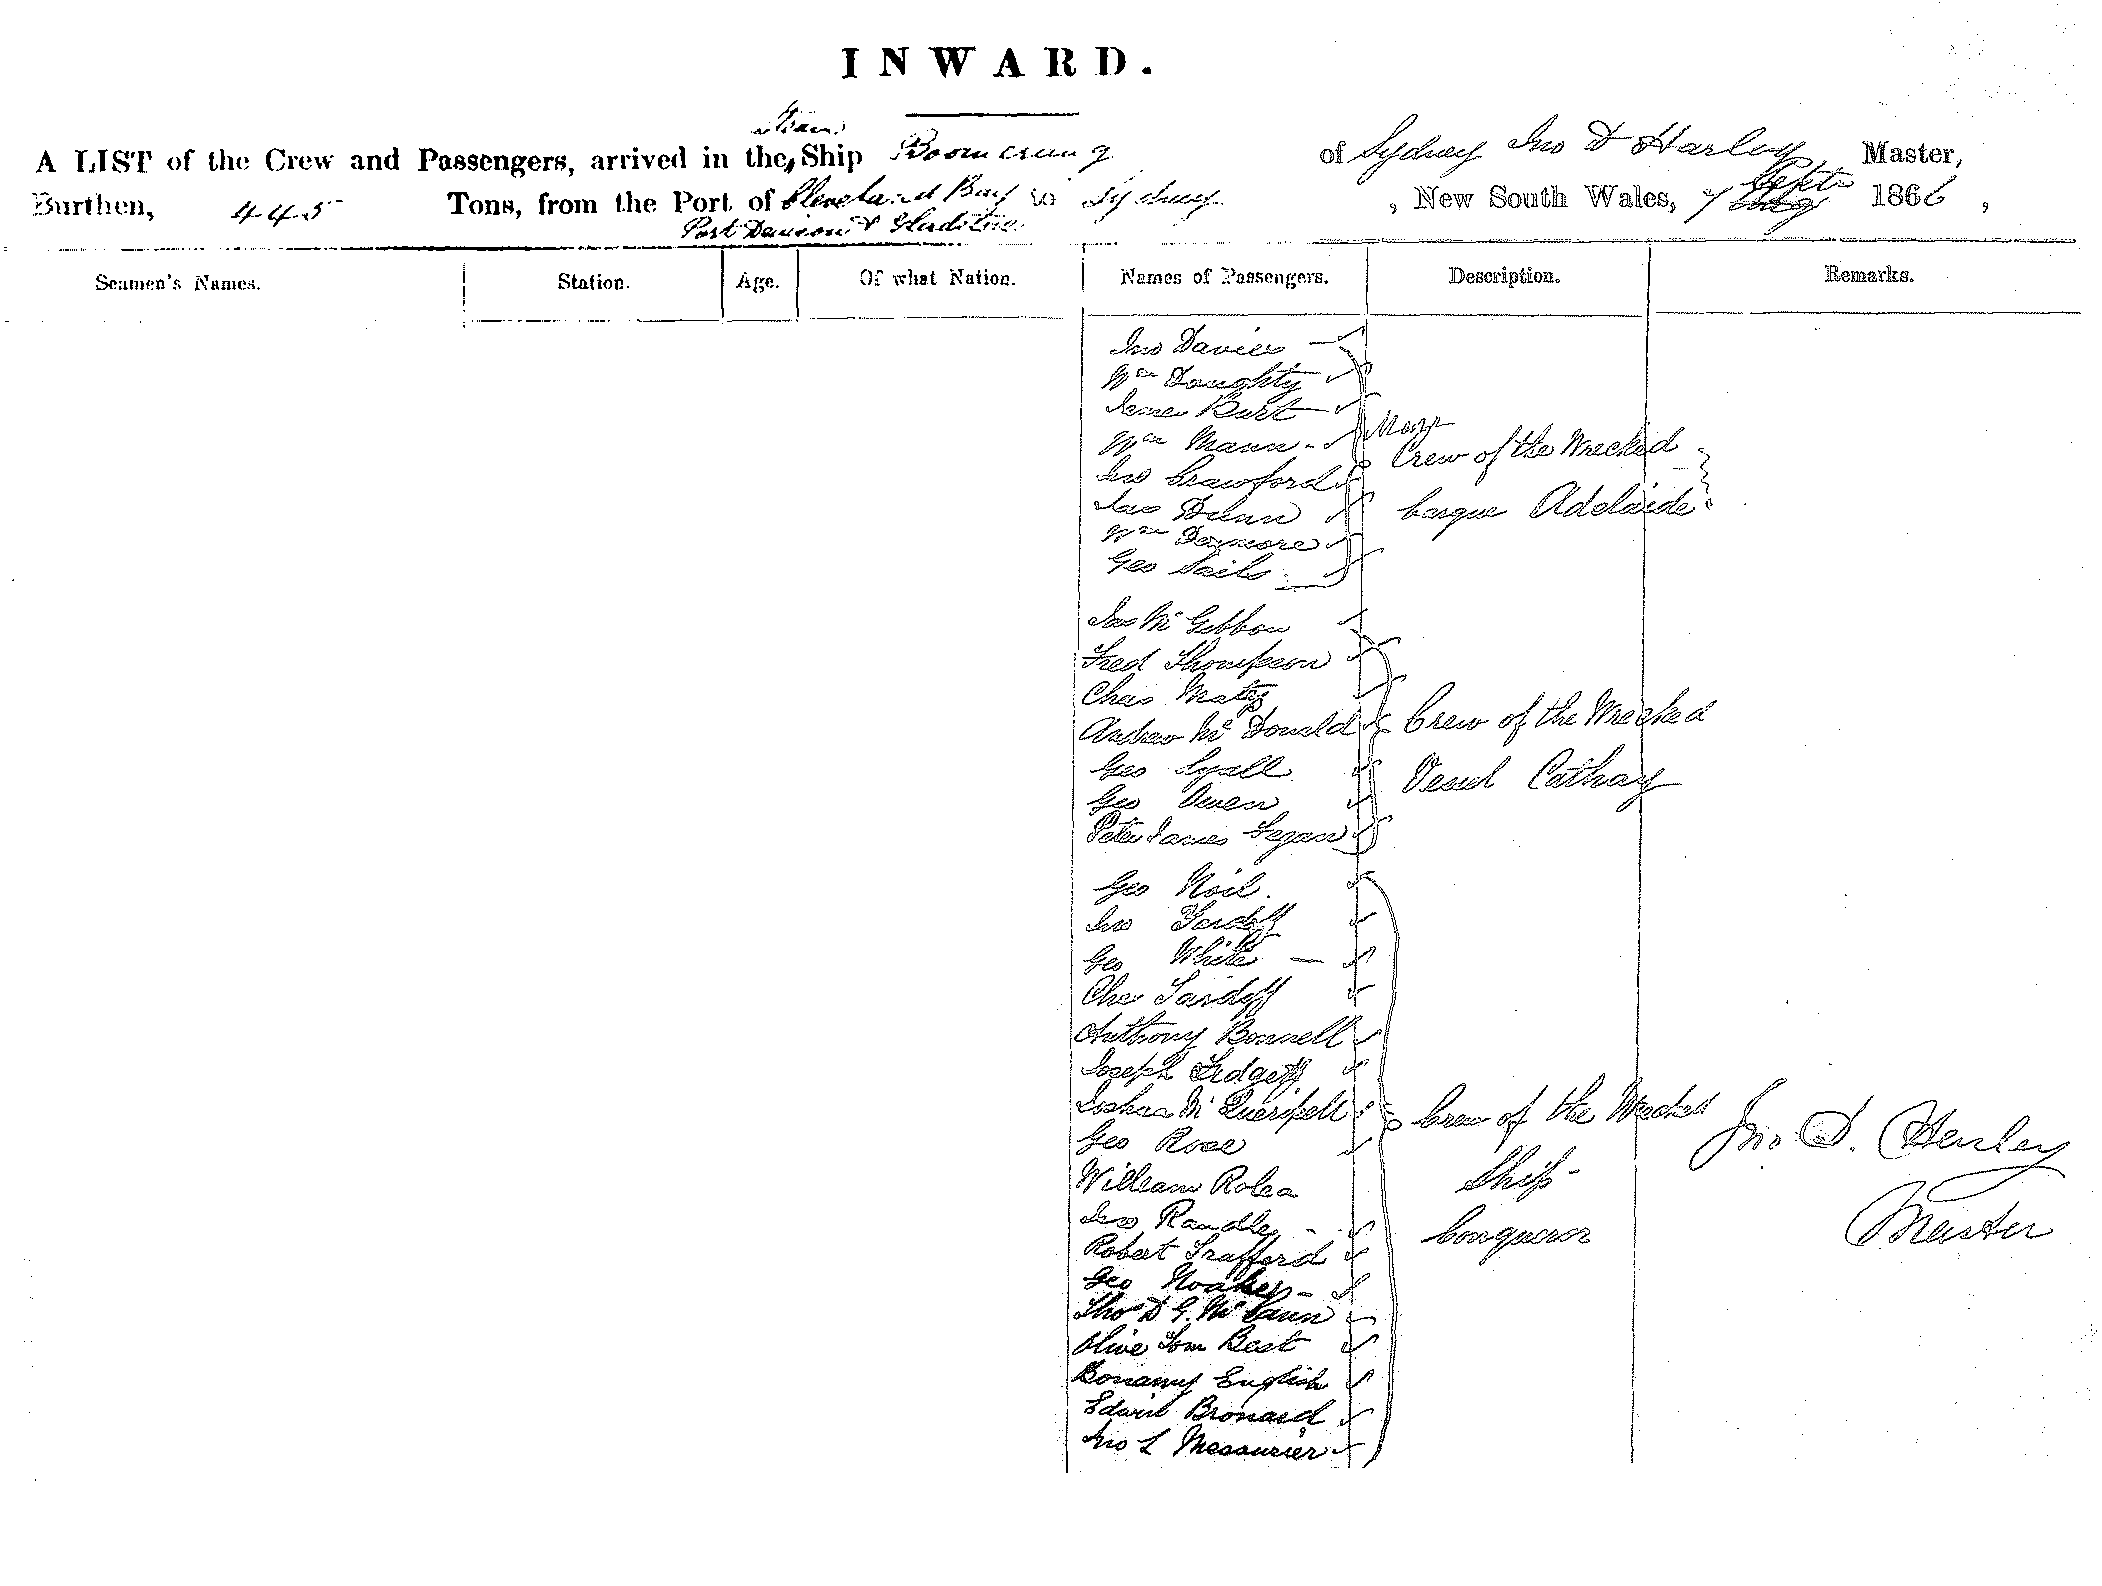 INWARD.
Steam
A LIST of the Crew and Passengers, arrived in the Ship Boomerang of Sydney Jno D Harley Master,
Burthen, 445 Tons, from the Port of Cleveland Bay to Sydney , New South Wales, 7 Sept 1866 ,
Port Denison & Gladstone
Seamen's Names. Station. Age. Of what Nation. Names of Passengers. Description. Remarks.
Jno Davies
Wm Doughty
Burt
Wm Mann
Jno Crawford
Crew of the Wrecked
Jas Dunn
barque Adelaide
Wm
Geo Sails
Jas Mc Gibbon
Fred Thompson
Chas
Andrew Mc Donald
Crew of the Wrecked
Geo Lyall
Vessel Cathay
Geo Owen
Peter James
Geo Noil.
Jno
Geo White
Chs
Anthony Bonnell
Joseph
Joshua Mc
Crew of the Wrecked
Geo Rose
Jno. D. Henley
William
Ship
Jno Randle
Conqueror
Master
Robert Trafford
Geo Noakes
Thos D G. Mc Cann
Olive Tom Best
Bonamy English
Edwin Bronard
Jno L Messurier